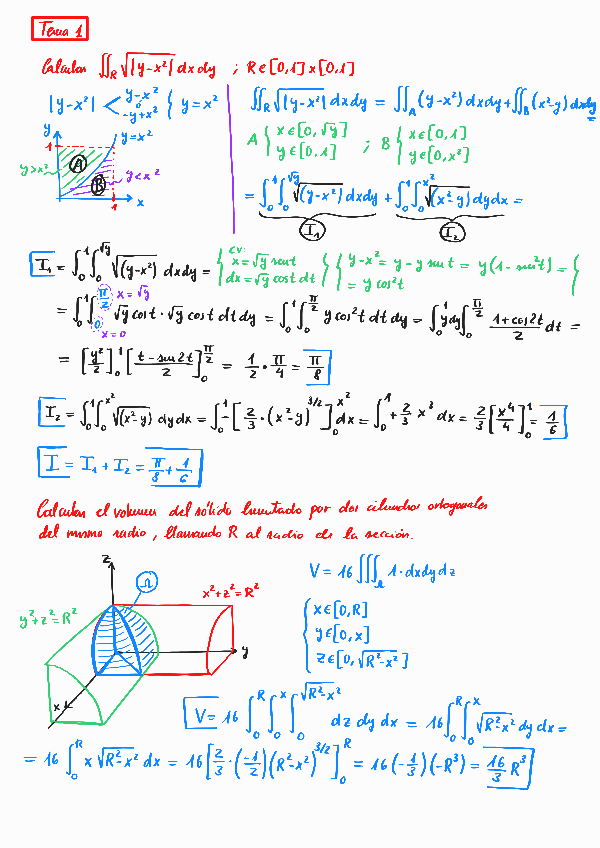 Tema 1
Calcular ∬_R √|y-x²| dxdy ; R∈[0,1]x[0,1]
|y-x²| < y-x² 0 -y+x² { y=x²
∬_R √|y-x²| dxdy = ∬_A (y-x²) dxdy + ∬_B (x²-y) dxdy
y
1
y>x²
A
B
y=x²
y<x²
1
x
A { x∈[0,√y] y∈[0,1] ; B { x∈[0,1] y∈[0,x²]
= ∫_0^1 ∫_0^√y √(y-x²) dxdy + ∫_0^1 ∫_0^x² √(x²-y) dydx =
I₁
I₂
I₁ = ∫_0^1 ∫_0^√y √(y-x²) dxdy = { CV: x=√y sen t dx=√y cos t dt } { y-x² = y - y sen t = y(1-sen²t) = = y cos²t {
= ∫_0^1 ∫_0^{π/2} √y cos t · √y cos t dt dy = ∫_0^1 ∫_0^{π/2} y cos²t dt dy = ∫_0^1 y dy ∫_0^{π/2} (1+cos 2t)/2 dt =
x=√y
x=0
= [y²/2]_0^1 [(t - sen 2t)/2]_0^{π/2} = 1/2 · π/4 = π/8
I₂ = ∫_0^1 ∫_0^x² √(x²-y) dydx = ∫_0^1 -[2/3 · (x²-y)^{3/2}]_0^x² dx = ∫_0^1 + 2/3 x³ dx = 2/3 [x⁴/4]_0^1 = 1/6
I = I₁ + I₂ = π/8 + 1/6
Calcular el volumen del sólido limitado por dos cilindros ortogonales
del mismo radio, llamando R al radio de la sección.
z
Ω
x²+z²=R²
y²+z²=R²
y
x
V = 16 ∭_Ω 1·dxdydz
{ x∈[0,R]
y∈[0,x]
z∈[0,√(R²-x²)]
V = 16 ∫_0^R ∫_0^x ∫_0^{√(R²-x²)} dz dy dx = 16 ∫_0^R ∫_0^x √(R²-x²) dy dx =
= 16 ∫_0^R x √(R²-x²) dx = 16 [2/3 · (-1/2) (R²-x²)^{3/2}]_0^R = 16 (-1/3) (-R³) = 16/3 R³